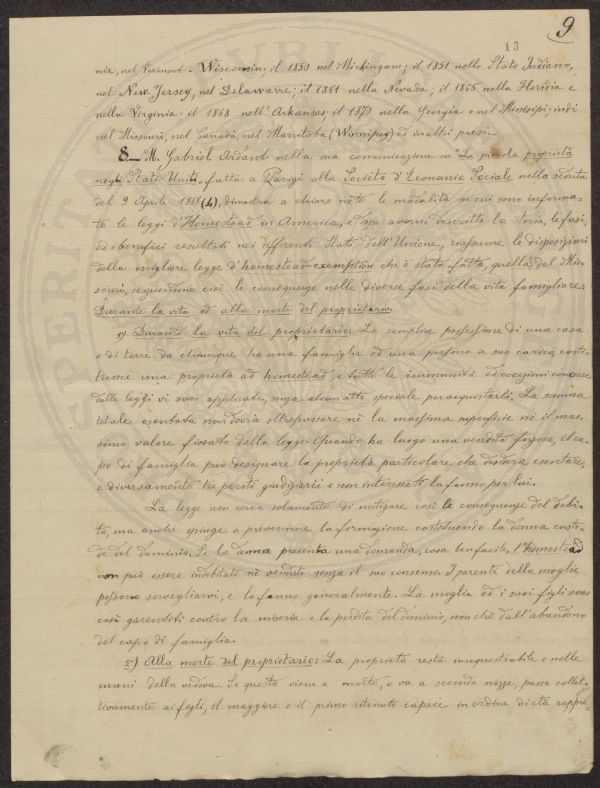 13
9
nia, nel Vermont. Wisconsin; il 1850 nel Michingam; il 1851 nello Stato Indiano,
nel New-Jersey, nel Delawarre; il 1861 nella Nevada; il 1865 nella Floridia e
nella Virginia; il 1868 nell'Arkansas; il 1870 nella Georgia e nel Missisipi; indi
nel Missouri, nel Canadà, nel Mannitoba (Winnipeg) ed in altri paesi.
8._ M. Gabriel Ardant nella sua comunicazione su "La piccola proprietà
negli Stati Uniti" fatta a Parigi alla Société d'Economie Sociale nella seduta
del 9 Aprile 1888 (4), dimostra a chiare note le modalità su cui sono informa-
te le leggi d'Homestead in America, e dopo averne descritto la storia, le fasi,
ed i benefici resultati nei differenti Stati dell'Unione, riassume le disposizioni
della migliore legge d'homestead exemption che è stata fatta, quella del Mis-
souri, seguendone cioè le conseguenze nelle diverse fasi della vita famigliare:
Durante la vita ed alla morte del proprietario.
1º) Durante la vita del proprietario: La semplice possessione di una casa
o di terre da chiunque ha una famiglia od una persona a suo carico, costi-
tuisce una proprietà ad homestead, e tutte le immunità ed eccezioni concesse
dalle leggi vi sono applicate, senza alcun atto speciale per acquistarli. La somma
totale esentata non dovrà oltrepassare nè la massima superficie nè il mas-
simo valore fissato dalla legge. Quando ha luogo una vendita forzosa, il ca-
po di famiglia può designare la proprietà particolare che desidera esentare,
o diversamente tre periti giudiziarii e non interessati la fanno per lui.
La legge non cerca solamente di mitigare così le conseguenze del debi-
to, ma anche spinge a prevenirne la formazione costituendo la donna custo-
de del dominio. Se la donna presenta una domanda, cosa ben facile, l'homestead
non può essere indebitato nè venduto senza il suo consenso. I parenti della moglie
possono sorvegliarvi, e lo fanno generalmente. La moglie ed i suoi figli sono
così garentiti contro la miseria e la perdita del dominio, non chè dall'abandono
del capo di famiglia.
2º) Alla morte del proprietario: La proprietà resta insequestrabile e nelle
mani della vedova. Se questa viene a morte, o va a seconde nozze, passa collet-
tivamente ai figli, il maggiore o il primo ritenuto capace in ordine di età rappre-